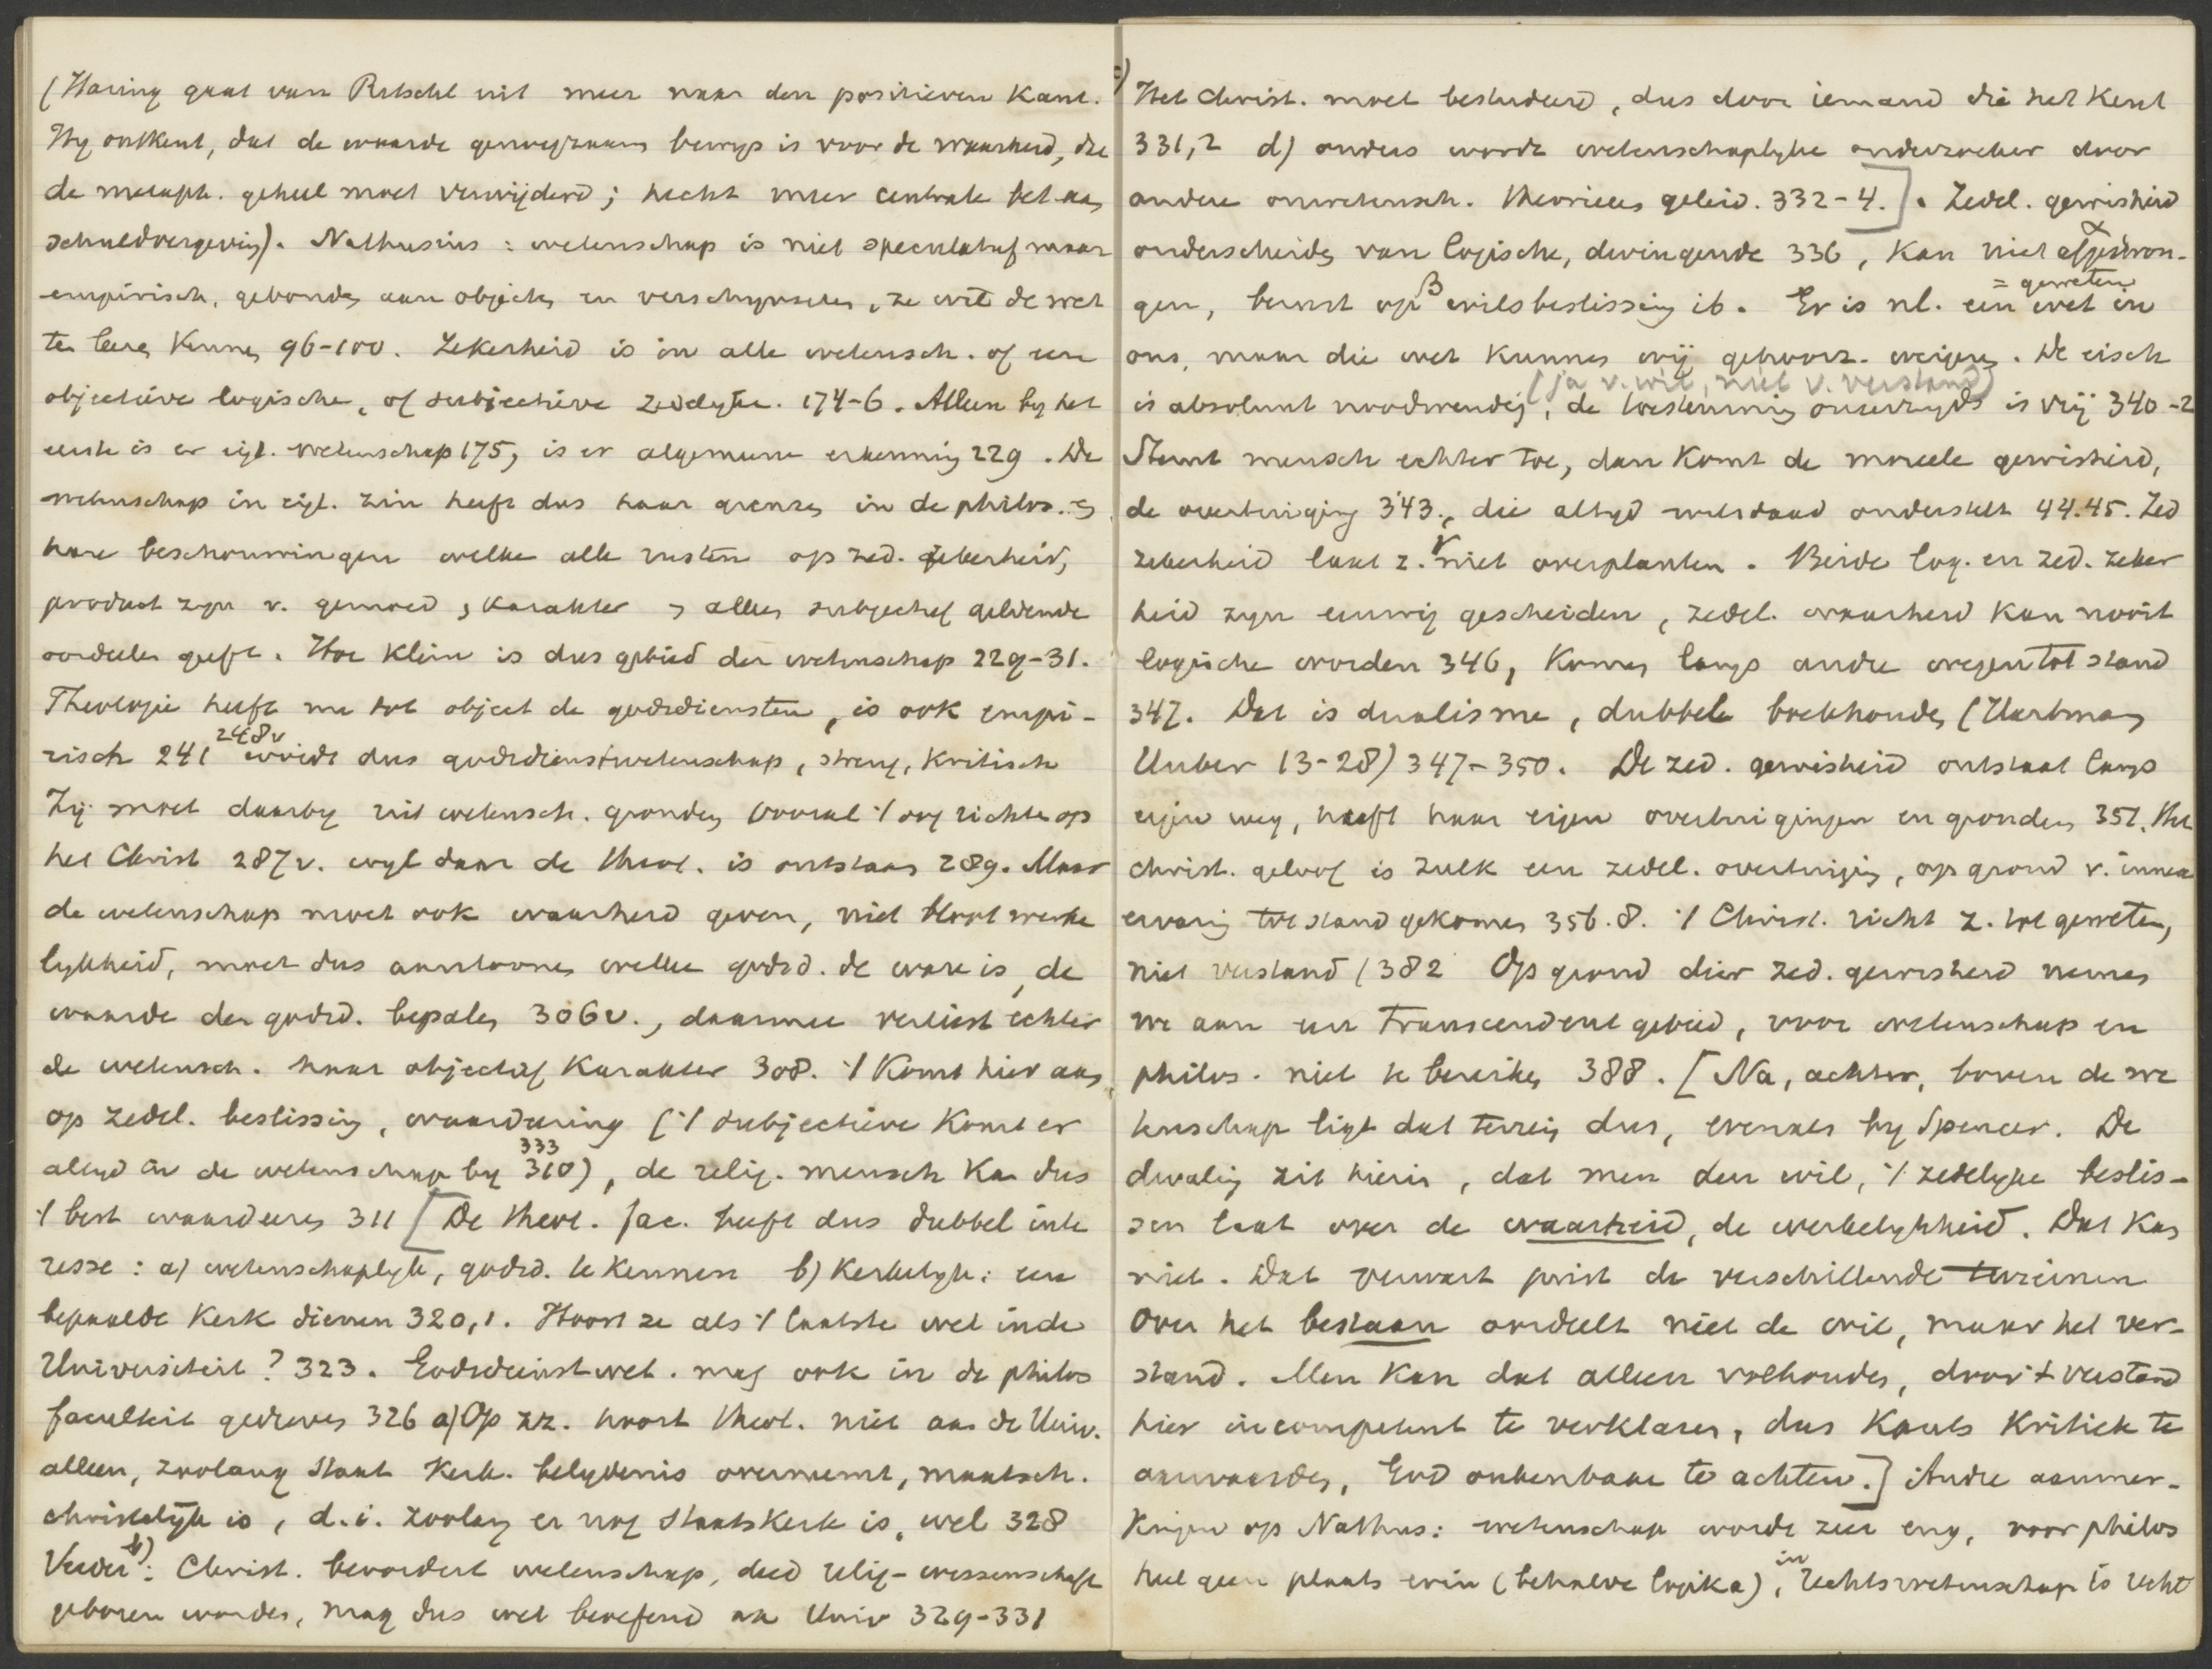 (Häring gaat van Ritschl uit meer naar den positieven kant.
Hy ontkent, dat de waarde genoegzaam bewys is voor de waarheid, dat
de metaph. geheel moet verwijderd; hecht meer centrale bet. aan
schuldvergeving). Nathusius: wetenschap is niet speculatief maar
empirisch, gebonden aan objecten en verschynselen, ze wil de wet
ten leeren kennen 96-100. Zekerheid is in alle wetensch. of een
objectieve logische, of subjectieve zedelyke. 174-6. Alleen by het
eerste is er eigl. wetenschap 175, is er algemeene erkenning 229. De
wetenschap in eigl. zin heeft dus haar grenzen in de philos. en
hare beschouwingen welke alle rusten op zed. zekerheid,
product zyn v. gemoed, karakter en alleen subjectief geldende
oordeelen geeft. Hoe klein is dus gebied der wetenschap 229-31.
Theologie heeft nu tot object de godsdiensten, is ook empi-
risch 241 248v wordt dus godsdienstwetenschap, streng, kritisch
Zij moet daarby uit wetensch. gronden vooral 't oog richten op
het Christ 287v. wyl daar de theol. is ontstaan 289. Maar
de wetenschap moet ook waarheid geven, niet bloot werke
lykheid, moet dus aantoonen welke godsd. de ware is, de
waarde der godsd. bepalen 306v., daarmee verliest echter
de wetensch. haar objectief karakter 308. 't Komt hier aan
op zedel. beslissing, waardeering ('t subjectieve komt er
altyd in de wetenschap by 310 333), de relig. mensch kan dus
't best waardeeren 311 [De theol. fac. heeft dus dubbel inte
resse: a) wetenschaplyk, godsd. te kennen b) kerkelyk: een
bepaalde kerk dienen 320,1. Hoort ze als 't laatste wel in de
Universiteit? 323. Godsdienstwet. mag ook in de philos
faculteit gedreven 326 a) Op zz. hoort theol. niet aan de Univ.
alleen, zoolang staat kerk. belydenis overneemt, maatsch.
christelijk is, d.i. zoolang er nog staatskerk is, wel 328
Verder b): Christ. bevordert wetenschap, deed relig-wissenschaft
geboren worden, mag dus wel beoefend aan Univ 329-331
c) Het Christ. moet bestudeerd, dus door iemand die het kent
331,2 d) anders wordt wetenschaplyke onderzoeker door
andere onwetensch. theorieen geleid. 332-4.]. Zedel. gewisheid
onderscheiden van logische, dwingende 336, kan niet α afgedwon-
gen, berust op β wilsbeslissing ib. Er is nl. een wet = geweten in
ons, maar die wet kunnen wij gehoorz. weigeren. De eisch
is absoluut noodwendig, (ja v. wil, niet v. verstand) de toestemming onzerzyds is vrij 340-2
Stemt mensch echter toe, dan komt de moreele gewisheid,
de overtuiging 343., die altyd wilsdaad onderstelt 44.45. Zed
zekerheid laat z. γ niet overplanten. Beide log. en zed. zeker
heid zyn eeuwig gescheiden, zedel. waarheid kan nooit
logische worden 346, komen langs andre wegen tot stand
347. Dat is dualisme, dubbele boekhouden (Hartman
Ueber 13-28) 347-350. De zed. gewisheid ontstaat langs
eigen weg, heeft haar eigen overtuigingen en gronden 351. Het
christ. geloof is zulk een zedel. overtuiging, op grond v. innerl
ervaring tot stand gekomen 356.8. 't Christ. richt z. tot geweten,
niet verstand (382 Op grond dier zed. gewisheid nemen
we aan een transcendent gebied, voor wetenschap en
philos. niet te bereiken 388. [Na, achter, boven de we
tenschap ligt dat terrein dus, evenals by Spencer. De
dwaling zit hierin, dat men den wil, 't zedelyke beslis-
sen laat over de waarheid, de werkelykheid. Dat kan
niet. Dat verwart juist de verschillende terreinen
Over het bestaan oordeelt niet de wil, maar het ver-
stand. Men kan dat alleen volhouden, door 't verstand
hier incompetent te verklaren, dus Kants kritiek te
aanvaarden, God onkenbaar te achten.] Andre aanmer-
kingen op Nathus: wetenschap wordt zeer eng, voor philos
heel geen plaats erin (behalve logika), in rechtswetenschap is recht